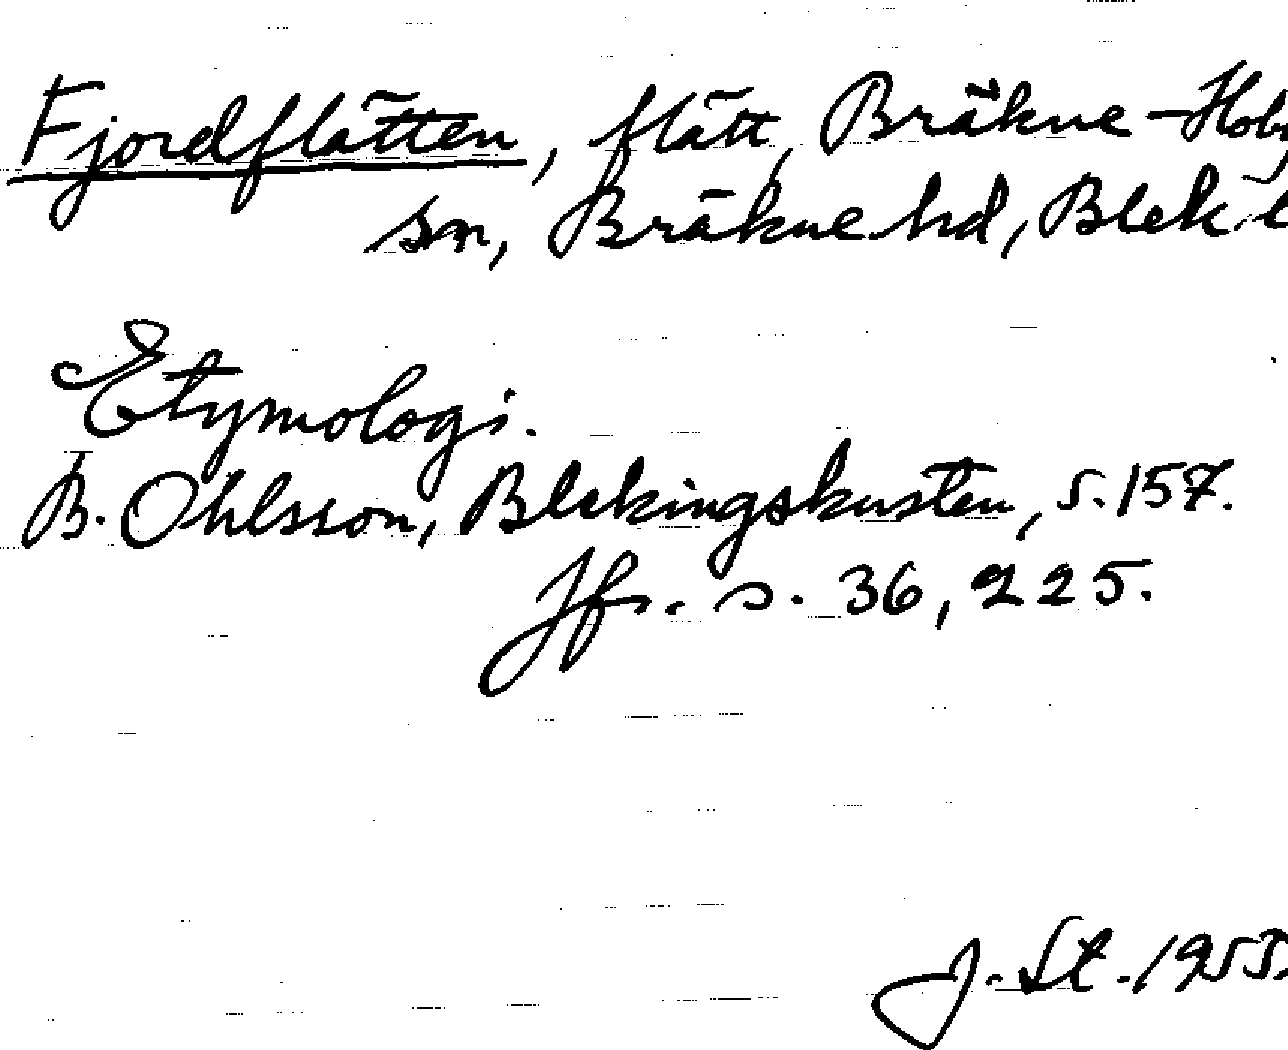 Fjordflätten, flätt, Bräkne-Hoby
sn, Bräkne hd, Blek. l
Etymologi.
B. Ohlsson, Blekingskusten, s. 157.
Jfr. s. 36, 225.
J. St. 1955